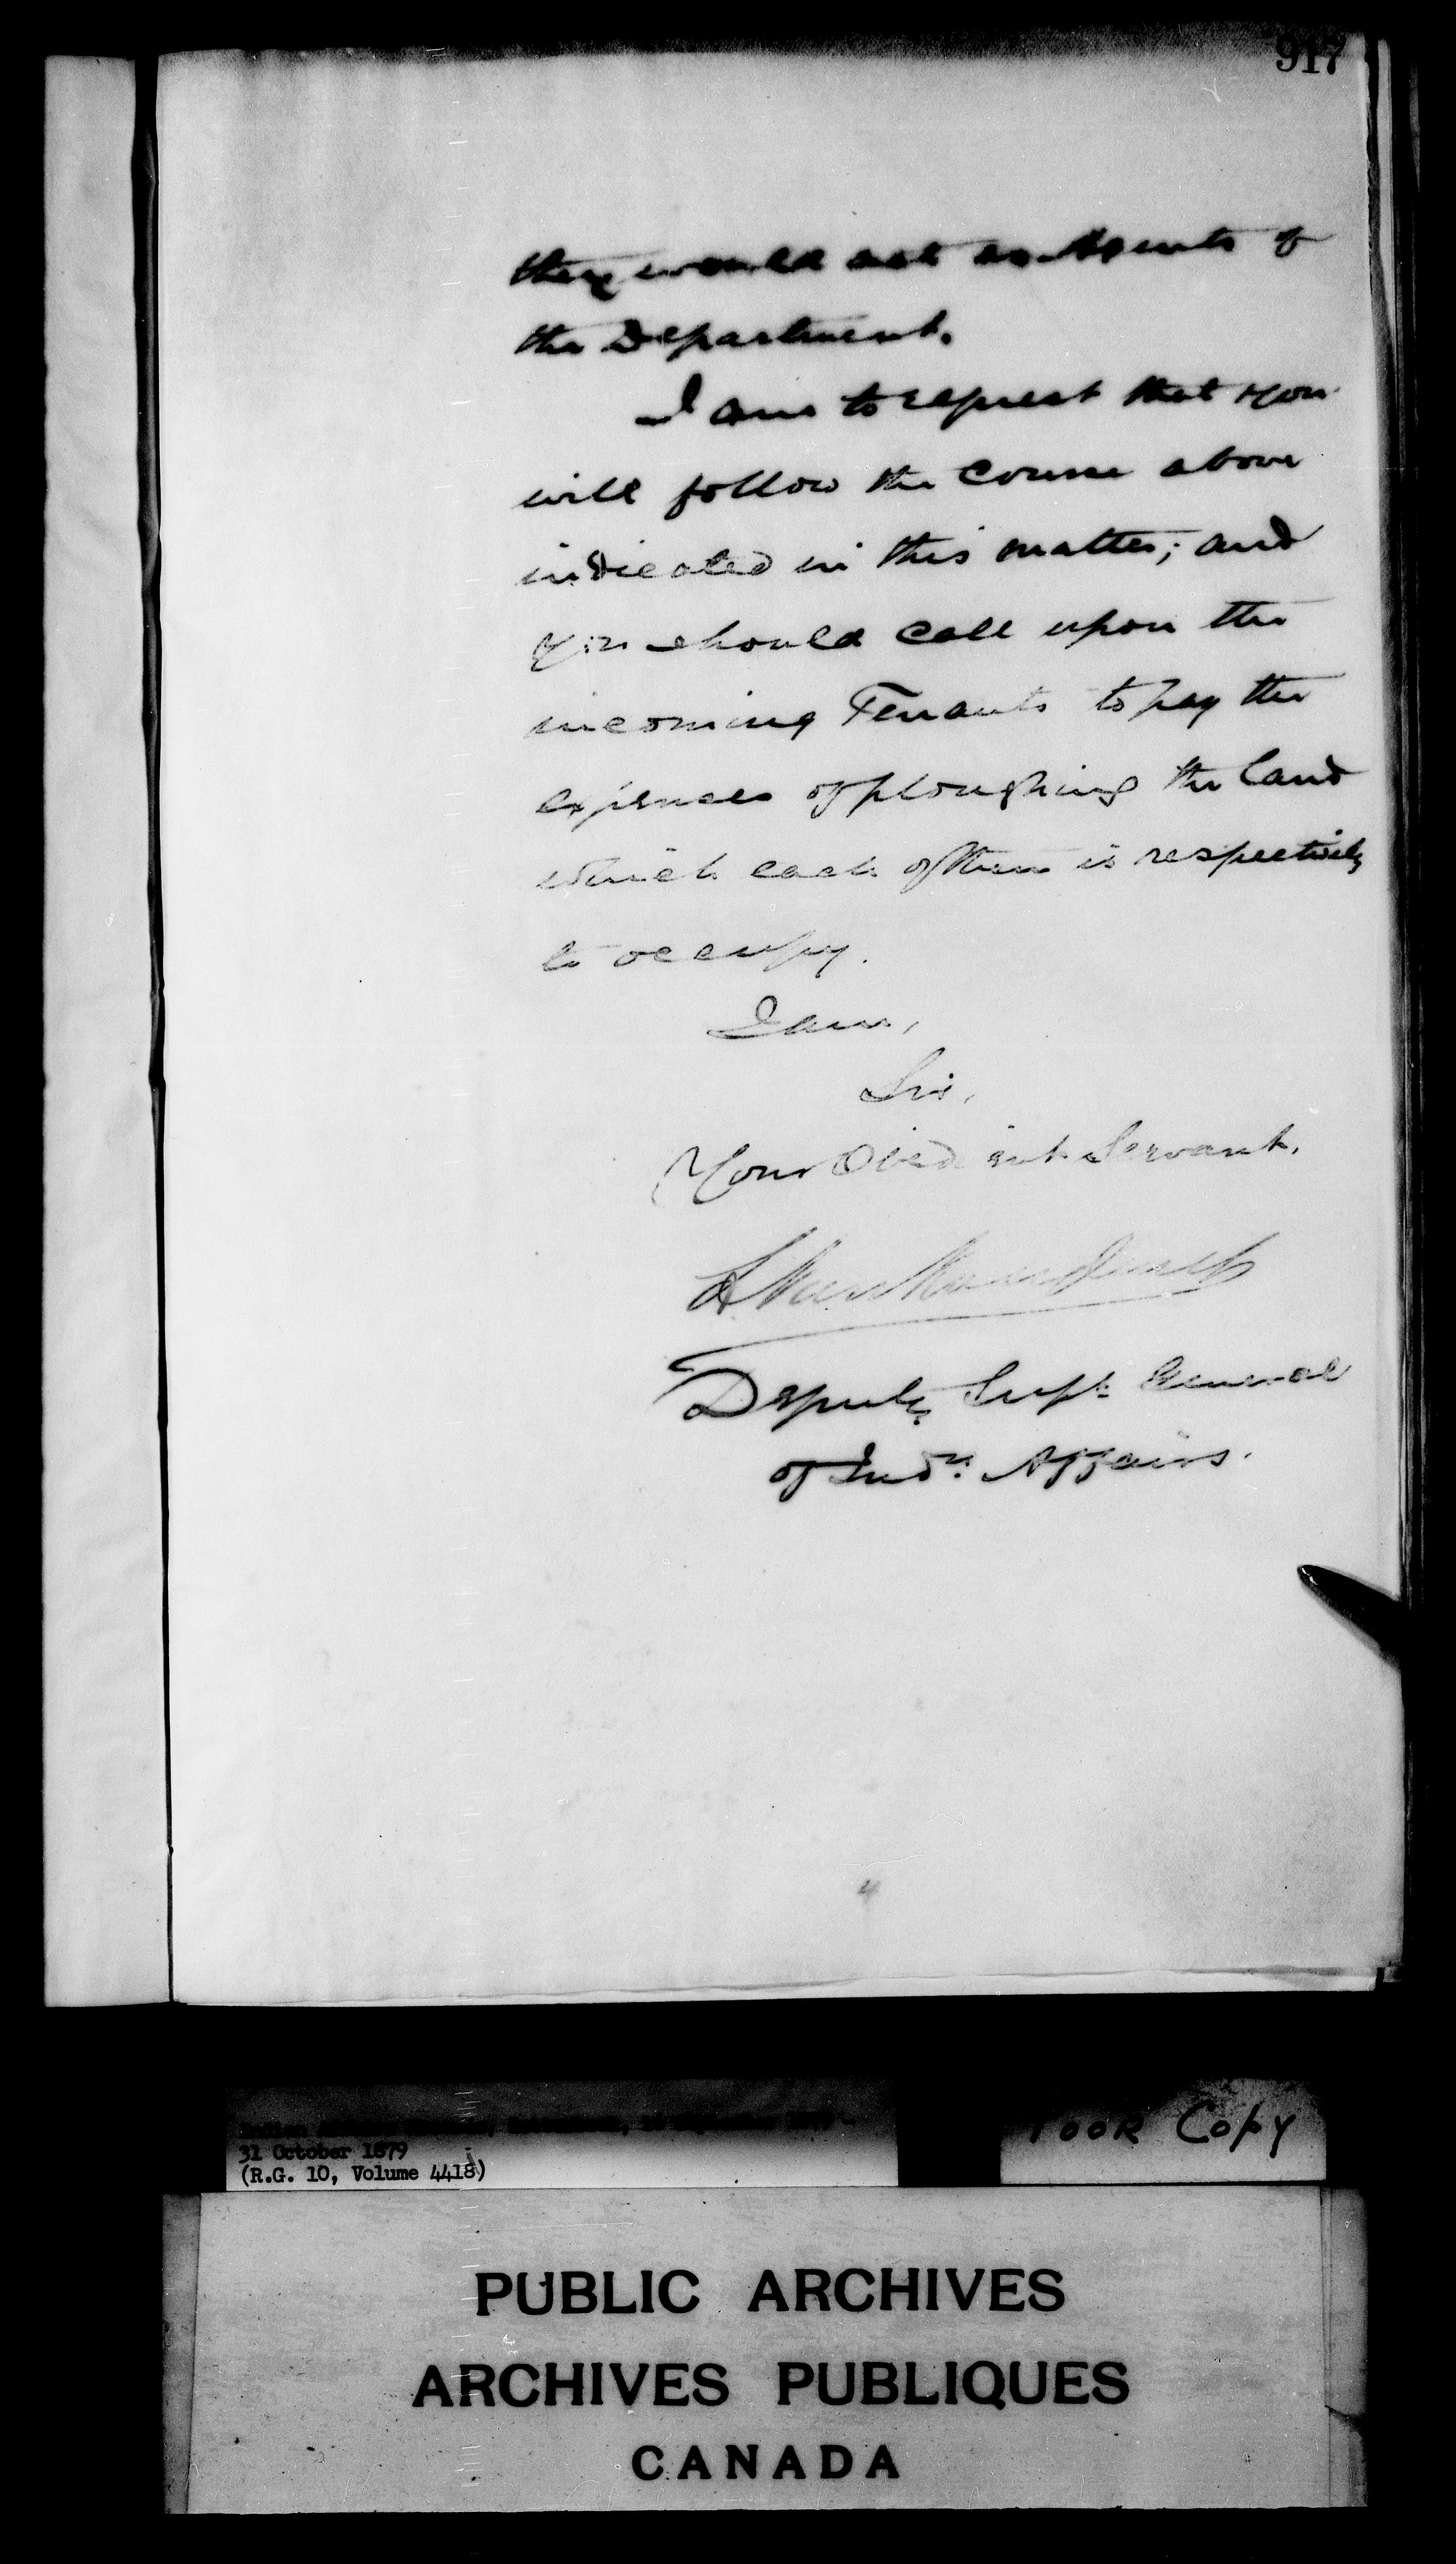 917
they would act as Agents of
the Department.
I am to request that you
will follow the Course above
indicated in this matter; and
you should call upon the
incoming Tenants to pay the
expenses of ploughing the land
which each of them is respectively
to occupy.
I am,
Sir,
Your Obedient Servant.
L Van Koughnet
Deputy Supt General
of Indn Affairs.
4
31 October 1879
(R.G. 10, Volume 4418)
POOR COPY
PUBLIC ARCHIVES
ARCHIVES PUBLIQUES
CANADA